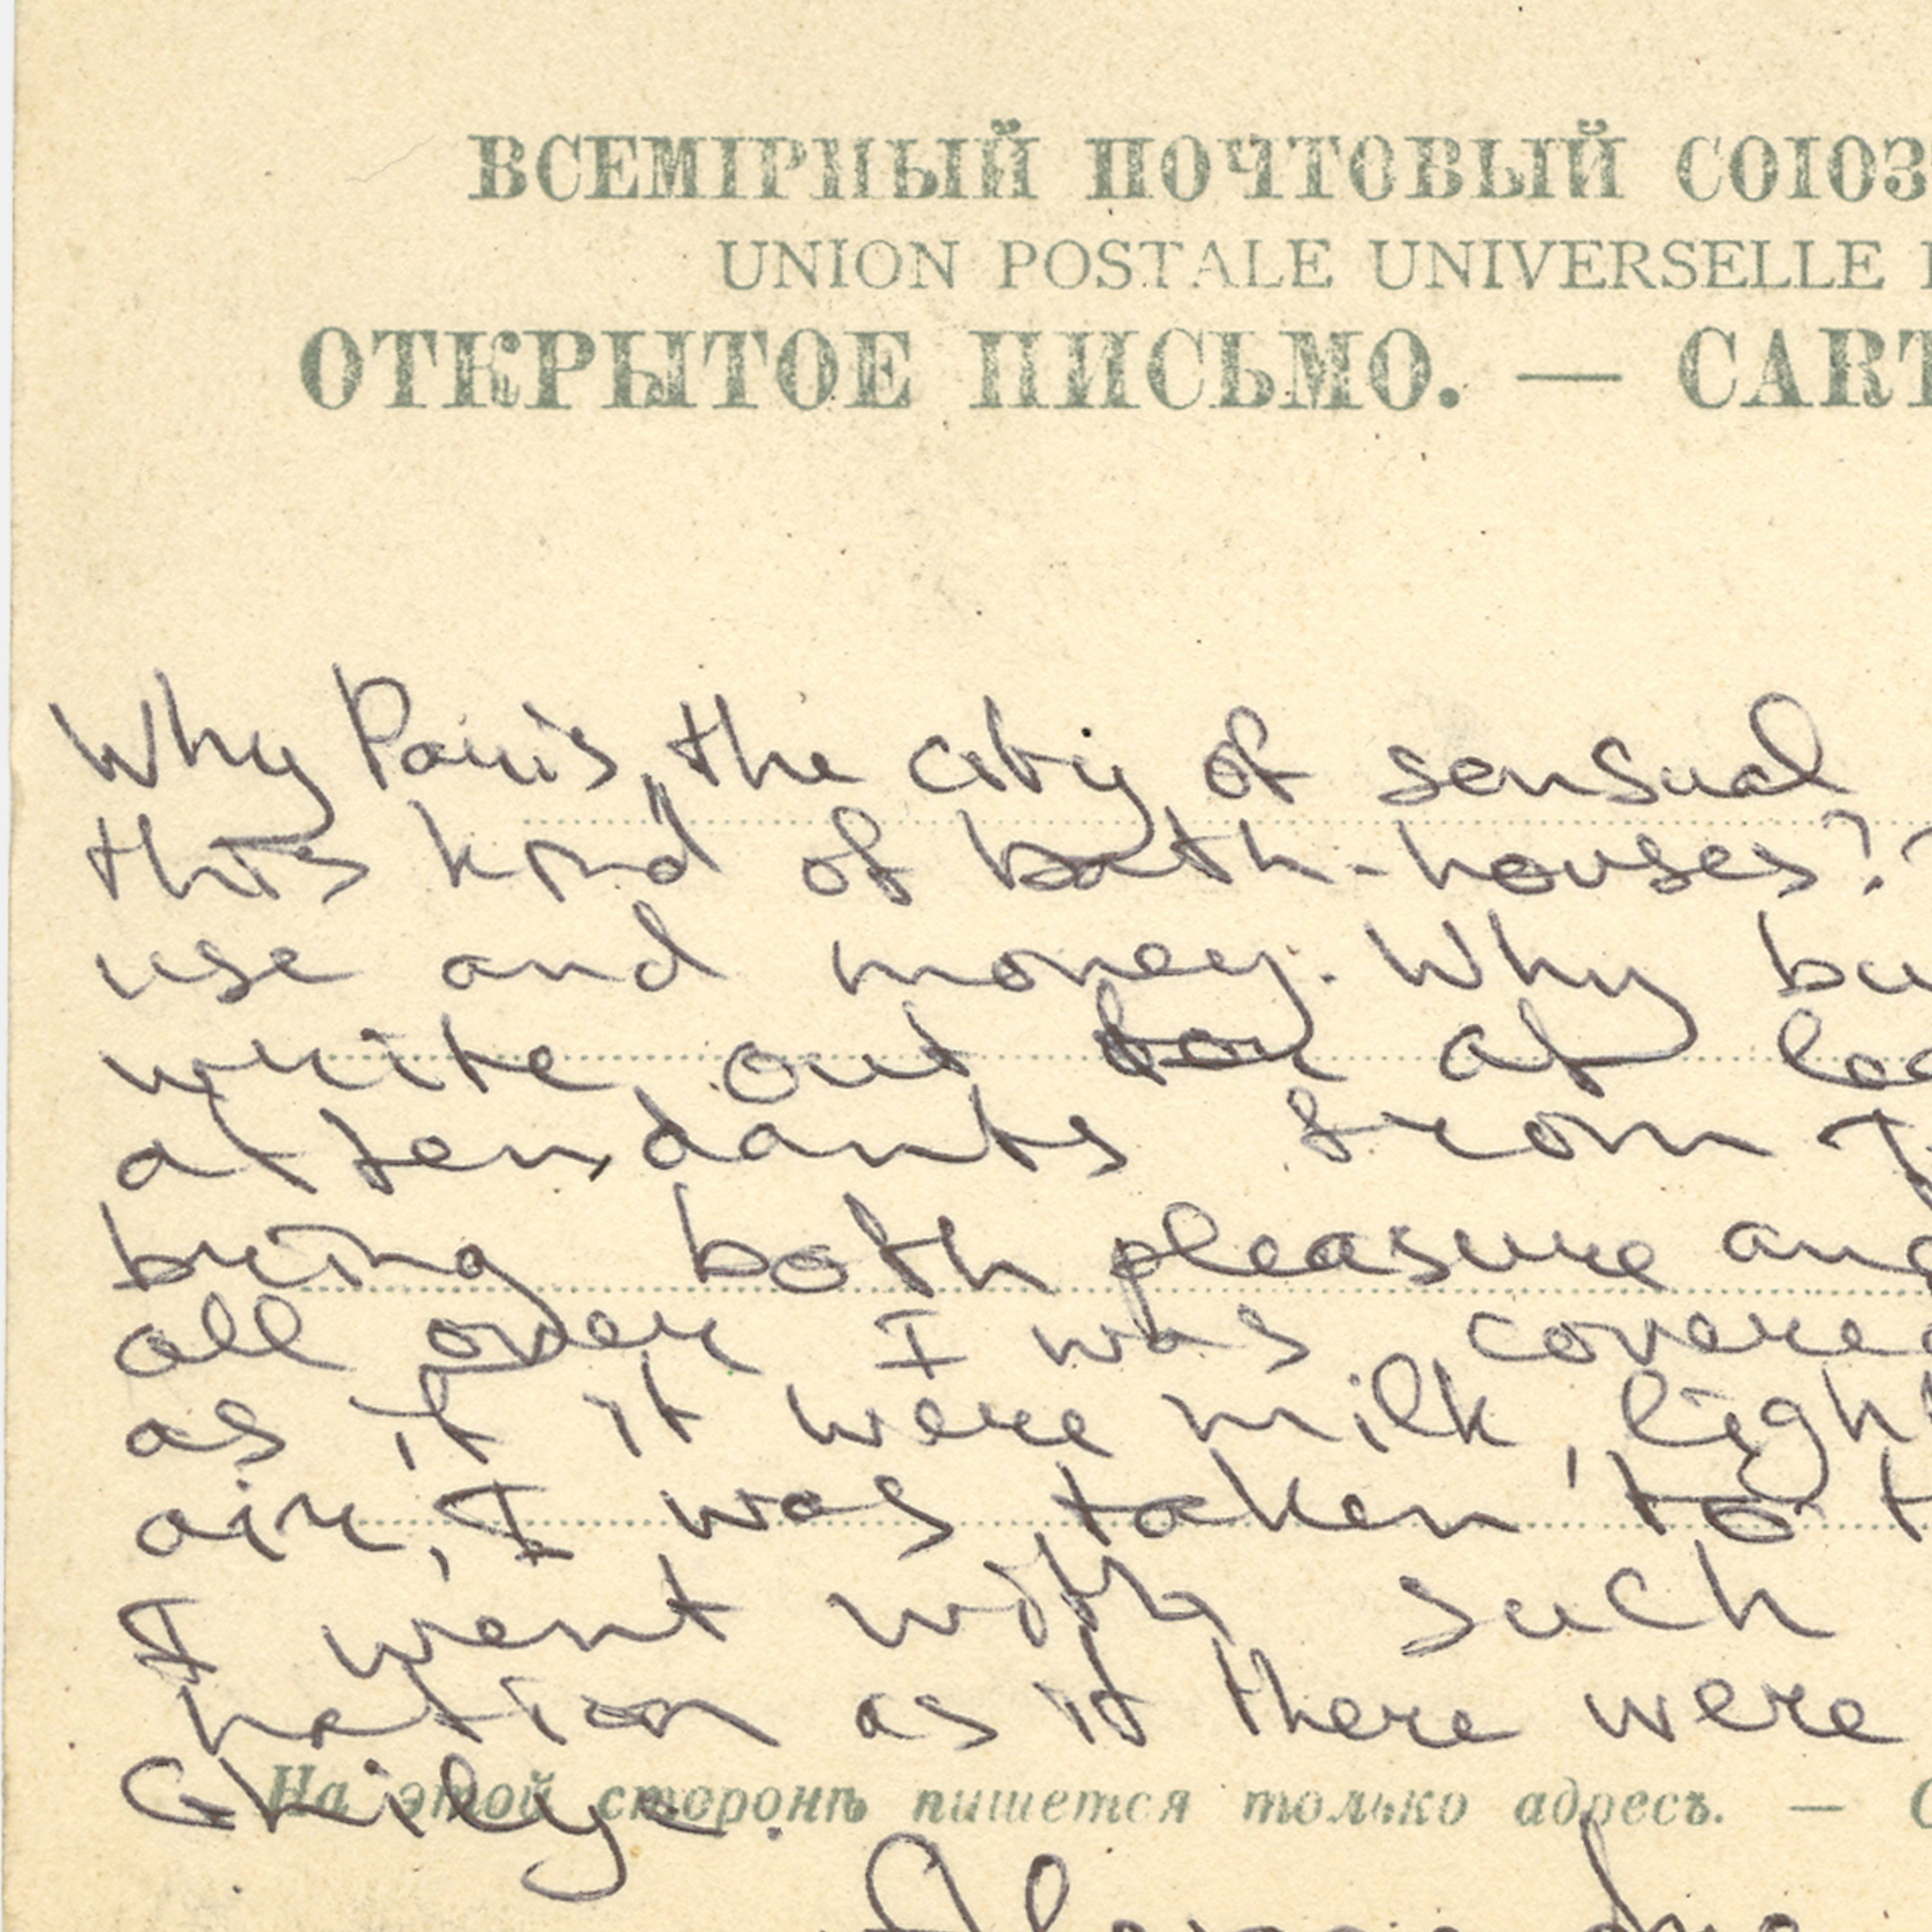 ВСЕМІРНЫЙ ПОЧТОВЫЙ СОЮЗ
UNION POSTALE UNIVERSELLE
ОТКРЫТОЕ ПИСЬМО. — CART
Why Paris, the city of sensual
this kind of bath-houses?
use and money. Why bu
write out for at lea
attendants from
bring both pleasure and
all over I was covered
as if it were milk, light
air, I was taken to t
I went with such
nation as if there were
Ghilye.
На этой сторонѣ пишется только адресъ. — C